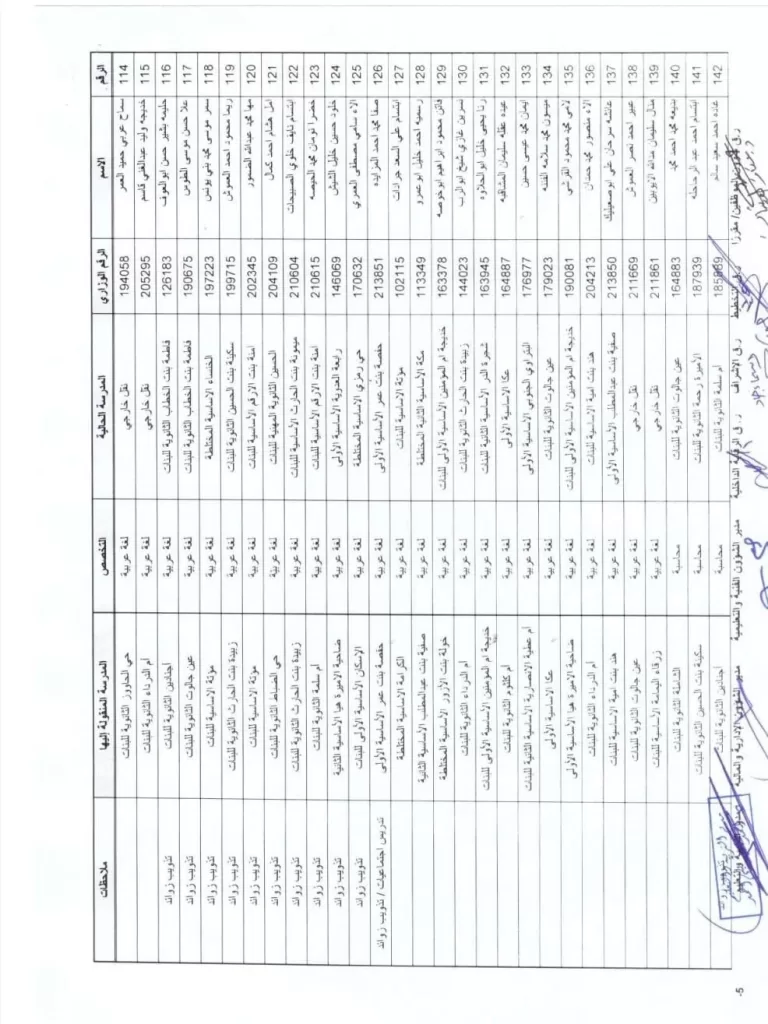 الرقم الاسم الرقم الوزاري المدرسة الحالية التخصص المدرسة المنقولة إليها ملاحظات
114 سماح عربي حميد العمر 194058 نقل خارجي لغة عربية حي الحاووز الثانوية للبنات
115 خديجه وليد عبدالغني قاسم 205295 نقل خارجي لغة عربية أم الدرداء الثانوية للبنات
116 حليمه بشير حسن ابو العوف 126183 فاطمة بنت الخطاب الثانوية للبنات لغة عربية أجنادين الثانوية للبنات تذويب زوائد
117 علا حسن موسى الطوس 190675 فاطمة بنت الخطاب الثانوية للبنات لغة عربية عين جالوت الثانوية للبنات تذويب زوائد
118 سمر موسى محمد بني يونس 197223 الخنساء الاساسية المختلطة لغة عربية مؤتة الاساسية للبنات تذويب زوائد
119 ريما محمود احمد العموش 199715 سكينة بنت الحسين الثانوية للبنات لغة عربية زبيدة بنت الحارث الثانوية للبنات تذويب زوائد
120 مها محمد عبدالله الصمور 202345 امنة بنت الارقم الأساسية للبنات لغة عربية مؤتة الاساسية للبنات تذويب زوائد
121 امل هشام احمد كمال 204109 الحسين الثانوية المهنية للبنات لغة عربية حي الضباط الثانوية للبنات تذويب زوائد
122 ابتسام نايف خلوي الصبيحات 210604 ميمونة بنت الحارث الاساسية للبنات لغة عربية زبيدة بنت الحارث الثانوية للبنات تذويب زوائد
123 خضرا نومان محمد الحيصه 210615 امنة بنت الارقم الاساسية للبنات لغة عربية أم سلمة الثانوية للبنات تذويب زوائد
124 خلود حسين خليل الشيش 146069 رابعة العدوية الاساسية الأولى لغة عربية ضاحية الاميرة هيا الأساسية الثانية تذويب زوائد
125 الاء سامي مصطفى العمري 170632 حي رمزي الاساسية المختلطة لغة عربية الإسكان الأساسية الأولى للبنات تذويب زوائد
126 صفا محمد احمد المزايده 213851 حفصة بنت عمر الأساسية الأولى لغة عربية حفصة بنت عمر الأساسية الأولى تدريس اجتماعيات / تذويب زوائد
127 ابتسام علي السعد جرادات 102115 مؤتة الاساسية للبنات لغة عربية الكرامة الاساسية المختلطة
128 رسميه احمد خليل ابو عمرو 113349 مكة الأساسية الثانية المختلطة لغة عربية صفية بنت عبدالمطلب الأساسية الثانية
129 فاتن محمود ابراهيم ابو خوصه 163378 خديجة ام المؤمنين الاساسية الأولى للبنات لغة عربية خولة بنت الأزور الاساسية المختلطة
130 نسرين غازي شيخ ابو الرب 144023 زبيدة بنت الحارث الثانوية للبنات لغة عربية أم الدرداء الثانوية للبنات
131 رنا يحيى خليل ابو الحلاوه 163945 شجرة الدر الأساسية الثانية للبنات لغة عربية خديجة ام المؤمنين الاساسية الأولى للبنات
132 عيده عقله سليمان المشاقبه 164887 عكا الاساسية الأولى لغة عربية أم كلثوم الثانوية للبنات
133 ايمان محمد عيسى حسين 176977 البتراوي الجنوبي الأساسية الأولى لغة عربية أم عطية الانصارية الأساسية الثانية للبنات
134 ميسون محمد سلامه الفقه 179023 عين جالوت الثانوية للبنات لغة عربية عكا الأساسية الأولى
135 لامي محمد محمود القرشي 190081 خديجة ام المؤمنين الاساسية الأولى للبنات لغة عربية ضاحية الاميرة هيا الأساسية الأولى
136 الاء منصور محمد حمدان 204213 هند بنت امية الاساسية للبنات لغة عربية أم الدرداء الثانوية للبنات
137 عائشه سرحان علي ابو صعيليك 213850 صفية بنت عبدالمطلب الأساسية الأولى لغة عربية هند بنت امية الأساسية للبنات
138 عبير احمد نصر العموش 211669 نقل خارجي لغة عربية عين جالوت الثانوية للبنات
139 منال سليمان عبدالله الايوبين 211861 نقل خارجي لغة عربية زرقاء اليمامة الأساسية للبنات
140 بديعه محمد احمد محمد 164883 عين جالوت الثانوية للبنات محاسبة الشاملة الثانوية للبنات
141 ابتسام احمد عبد الرحمن 187939 الأميرة رحمة الثانوية للبنات محاسبة سكينة بنت الحسين الثانوية للبنات
142 غاده احمد سعيد سالم ام سلمة الثانوية للبنات محاسبة أجنادين الثانوية للبنات
ر.ق الاشراف ر.ق الرقابة الداخلية مدير الشؤون الفنية والتعليمية مدير الشؤون الادارية و المالية
-5